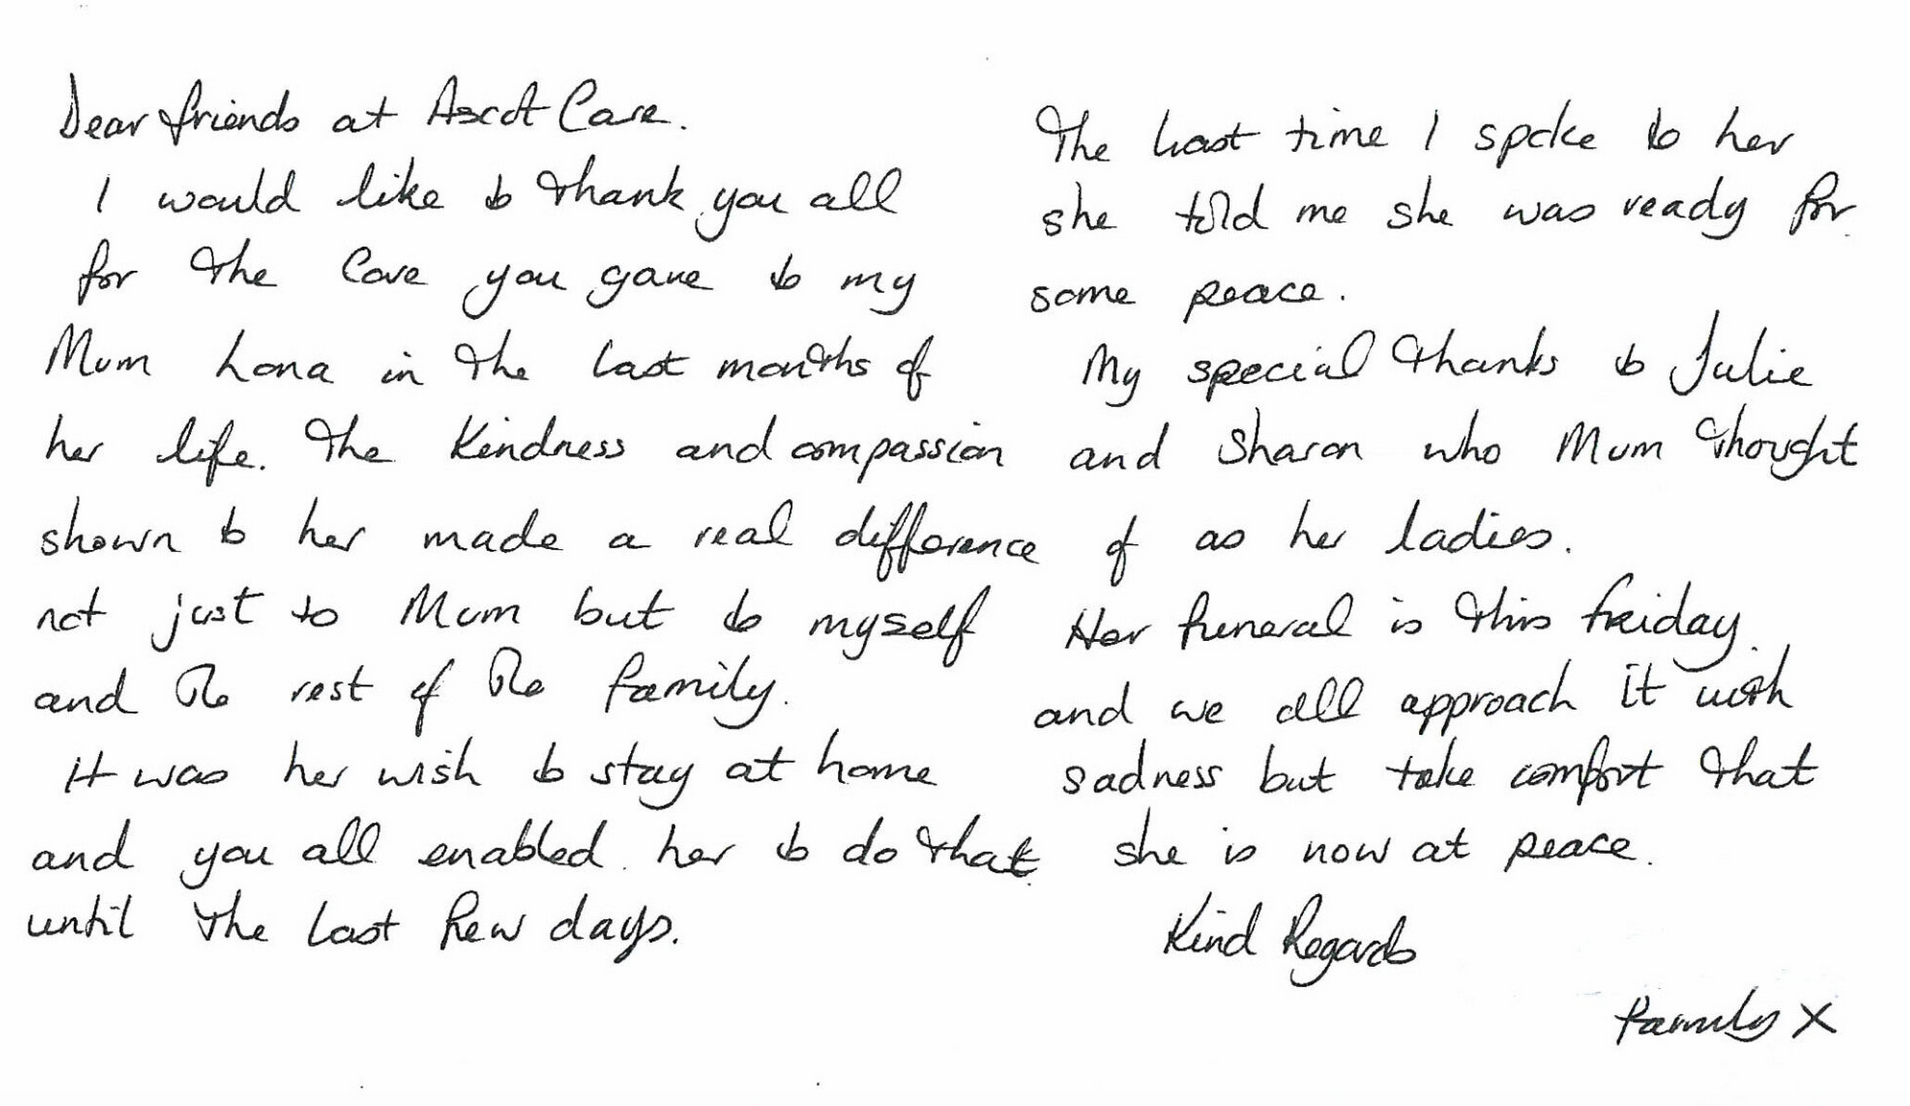 Dear friends at Ascot Care.
I would like to thank you all
for the Care you gave to my
Mum Lona in the last months of
her life. The Kindness and compassion
shown to her made a real difference
not just to Mum but to myself
and the rest of the family.
It was her wish to stay at home
and you all enabled her to do that
until the last few days.
The last time I spoke to her
she told me she was ready for
some peace.
My special thanks to Julie
and Sharon who Mum thought
of as her ladies.
Her funeral is this friday
and we all approach it with
sadness but take comfort that
she is now at peace.
Kind Regards
Family X